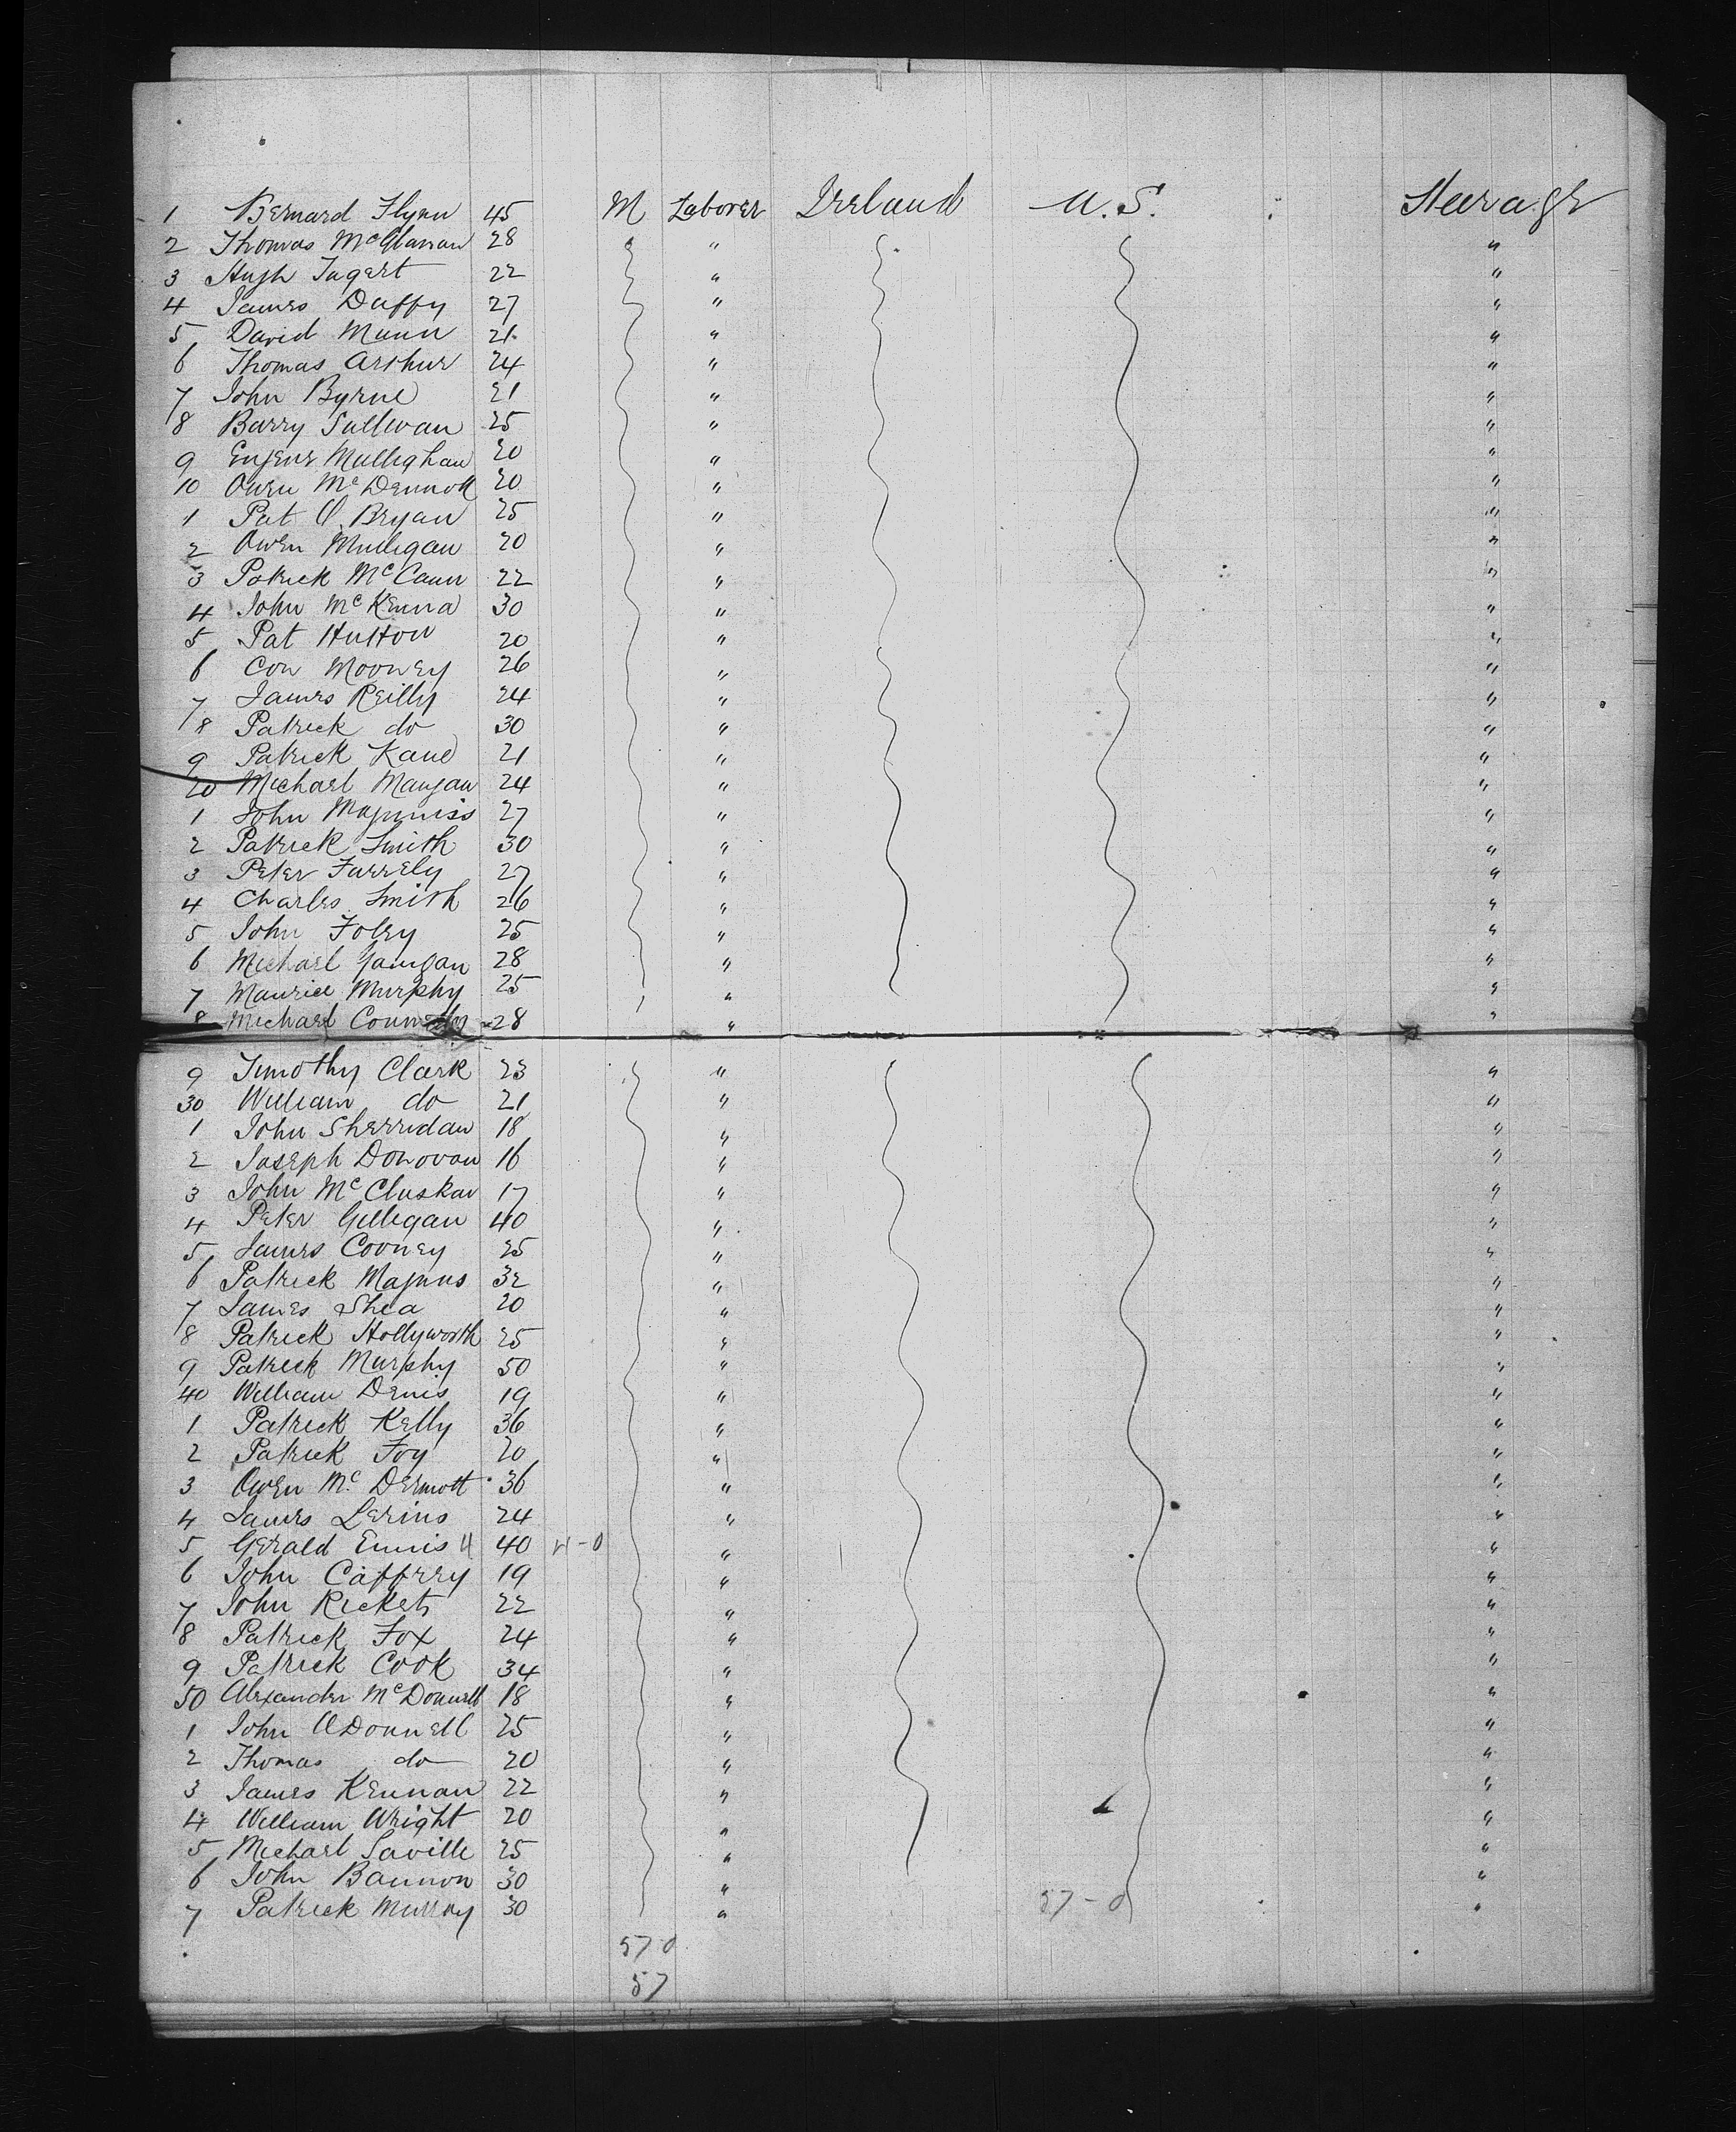 1 Bernard Flynn 45 M Laborer Ireland U.S. Steerage
2 Thomas McGlanan 28 " "
3 Hugh Tagert 22 " "
4 James Duffy 27 " "
5 David Munn 21 " "
6 Thomas Arthur 24 " "
7 John Byrne 21 " "
8 Barry Sullivan 25 " "
9 Eugene Mullighan 20 " "
10 Owen McDermott 20 " "
1 Pat O. Bryan 25 " "
2 Owen Mulligan 20 " "
3 Patrick McCann 22 " "
4 John McKenna 30 " "
5 Pat Hutton 20 " "
6 Con Mooney 26 " "
7 James Reilly 24 " "
8 Patrick do 30 " "
9 Patrick Kane 21 " "
20 Michael Mangan 24 " "
1 John Maginniss 27 " "
2 Patrick Smith 30 " "
3 Peter Farrely 27 " "
4 Charles Smith 26 " "
5 John Foley 25 " "
6 Michael 28 " "
7 Maurice Murphy 25 " "
8 Michael 28 " "
9 Timothy Clark 23 " "
30 William do 21 " "
1 John Sherridan 18 " "
2 Joseph Donovan 16 " "
3 John McCluskar 17 " "
4 Peter Gilligan 40 " "
5 James Cooney 25 " "
6 Patrick Magnus 32 " "
7 James Shea 20 " "
8 Patrick Hollyworth 25 " "
9 Patrick Murphy 50 " "
40 William Denis 19 " "
1 Patrick Kelly 36 " "
2 Patrick Foy 20 " "
3 Owen McDermott 36 " "
4 James Lerins 24 " "
5 Gerald Ennis 40 " "
6 John Caffrey 19 " "
7 John Rickets 22 " "
8 Patrick Fox 24 " "
9 Patrick Cook 34 " "
50 Alexander McDonnell 18 " "
1 John ODonnell 25 " "
2 Thomas do 20 " "
3 James Kennan 22 " "
4 William Wright 20 " "
5 Michael Saville 25 " "
6 John Bannon 30 " "
7 Patrick Murray 30 " 57-0 "
57 0
57